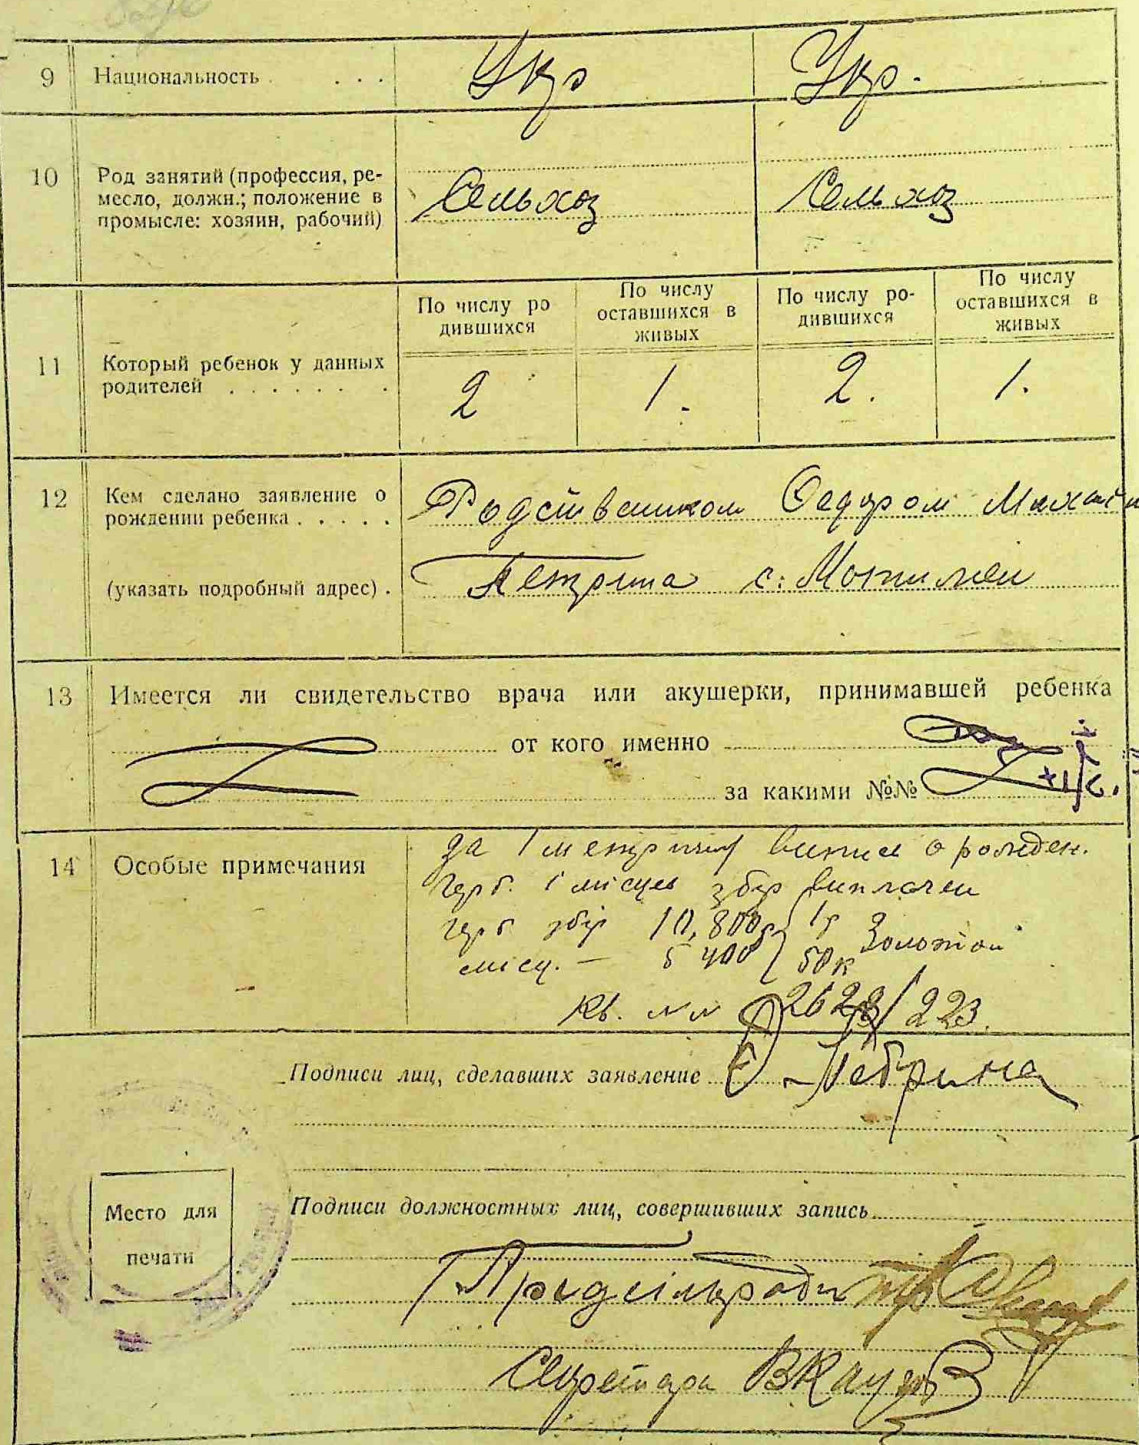 9 Национальность . . . . Укр Укр.
10 Род занятий (профессия, ре-
месло, должн.; положение в
промысле: хозяин, рабочий)
Сельхоз Сельхоз
11 Который ребенок у данных
родителей . . . . . . .
По числу ро
дившихся
По числу
оставшихся в
живых
По числу ро-
дившихся
По числу
оставшихся в
живых
2 1. 2. 1.
12 Кем сделано заявление о
рождении ребенка . . . . .
(указать подробный адрес) .
Родствеником Федором
Петрина с.
13 Имеется ли свидетельство врача или акушерки, принимавшей ребенка
от кого именно
за какими №№
14 Особые примечания
за 1 о рожден.
герб. і місцев збір виплачен
герб збір 10,800 1р Золотой
місц. — 5 400 50к
Кв. 223.
Подписи лиц, сделавших заявление Петрина
Место для
печати
Подписи должностных лиц, совершивших запись
Секретарь